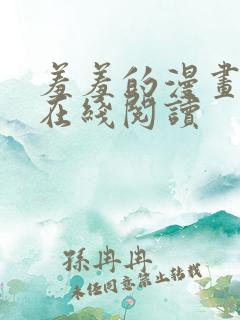 羞羞的漫畫
在綫閱讀
孫冉冉
未經同意禁止轉載